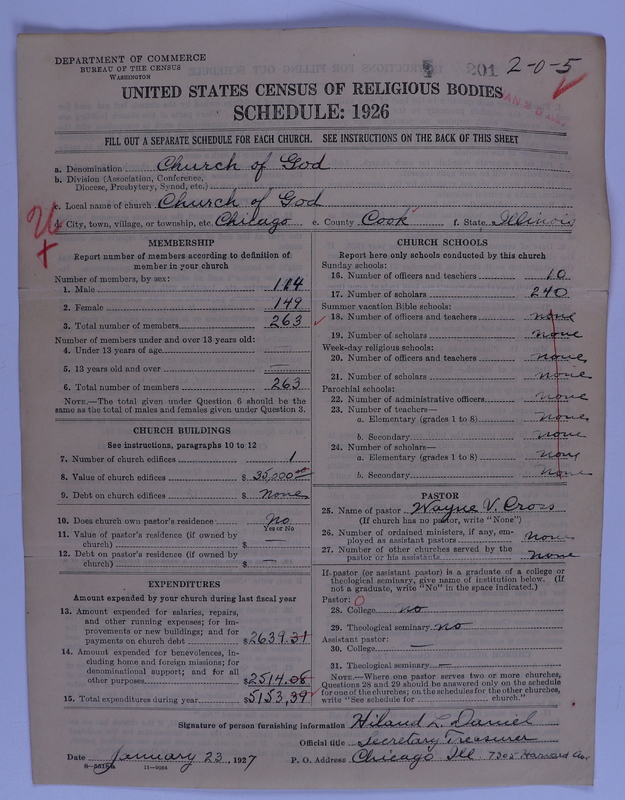 DEPARTMENT OF COMMERCE
BUREAU OF THE CENSUS
WASHINGTON
201 2-0-5
UNITED STATES CENSUS OF RELIGIOUS BODIES
SCHEDULE: 1926
FILL OUT A SEPARATE SCHEDULE FOR EACH CHURCH. SEE INSTRUCTIONS ON THE BACK OF THIS SHEET
a. Denomination Church of God
b. Division (Association, Conference,
Diocese, Presbytery, Synod, etc.)
c. Local name of church Church of God
d. City, town, village, or township, etc. Chicago e. County Cook f. State Illinois
MEMBERSHIP
Report number of members according to definition of
member in your church
Number of members, by sex:
1. Male 114
2. Female 149
3. Total number of members 263
Number of members under and over 13 years old:
4. Under 13 years of age
5. 13 years old and over —
6. Total number of members 263
NOTE.—The total given under Question 6 should be the
same as the total of males and females given under Question 3.
CHURCH BUILDINGS
See instructions, paragraphs 10 to 12
7. Number of church edifices 1
8. Value of church edifices $ 35,000.00
9. Debt on church edifices $ None
10. Does church own pastor's residence No
Yes or No
11. Value of pastor's residence (if owned by
church) $
12. Debt on pastor's residence (if owned by
church) $ —
EXPENDITURES
Amount expended by your church during last fiscal year
13. Amount expended for salaries, repairs,
and other running expenses; for im-
provements or new buildings; and for
payments on church debt $ 2639.31
14. Amount expended for benevolences, in-
cluding home and foreign missions; for
denominational support; and for all
other purposes $ 2514.08
15. Total expenditures during year $ 5153,39
CHURCH SCHOOLS
Report here only schools conducted by this church
Sunday schools:
16. Number of officers and teachers 10
17. Number of scholars 240
Summer vacation Bible schools:
18. Number of officers and teachers none
19. Number of scholars none
Week-day religious schools:
20. Number of officers and teachers none
21. Number of scholars none
Parochial schools:
22. Number of administrative officers none
23. Number of teachers—
a. Elementary (grades 1 to 8) none
b. Secondary none
24. Number of scholars—
a. Elementary (grades 1 to 8) none
b. Secondary none
PASTOR
25. Name of pastor Wayne V. Cross
(If church has no pastor, write "None")
26. Number of ordained ministers, if any, em-
ployed as assistant pastors none
27. Number of other churches served by the
pastor or his assistants none
If pastor (or assistant pastor) is a graduate of a college or
theological seminary, give name of institution below. (If
not a graduate, write "No" in the space indicated.)
Pastor: O
28. College no
29. Theological seminary no
Assistant pastor:
30. College —
31. Theological seminary —
NOTE.—Where one pastor serves two or more churches,
Questions 28 and 29 should be answered only on the schedule
for one of the churches; on the schedules for the other churches,
write "See schedule for church."
Signature of person furnishing information Hiland L. Daniel
Official title Secretary Treasurer
Date January 23, 1927 P. O. Address Chicago Ill. 7305 Harvard Av.
11—9084